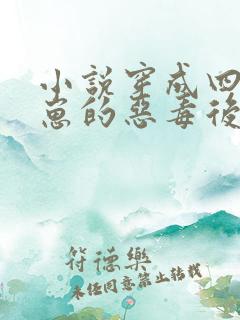 小說穿成四
崽的惡毒後
符德樂
未经同意禁止转载